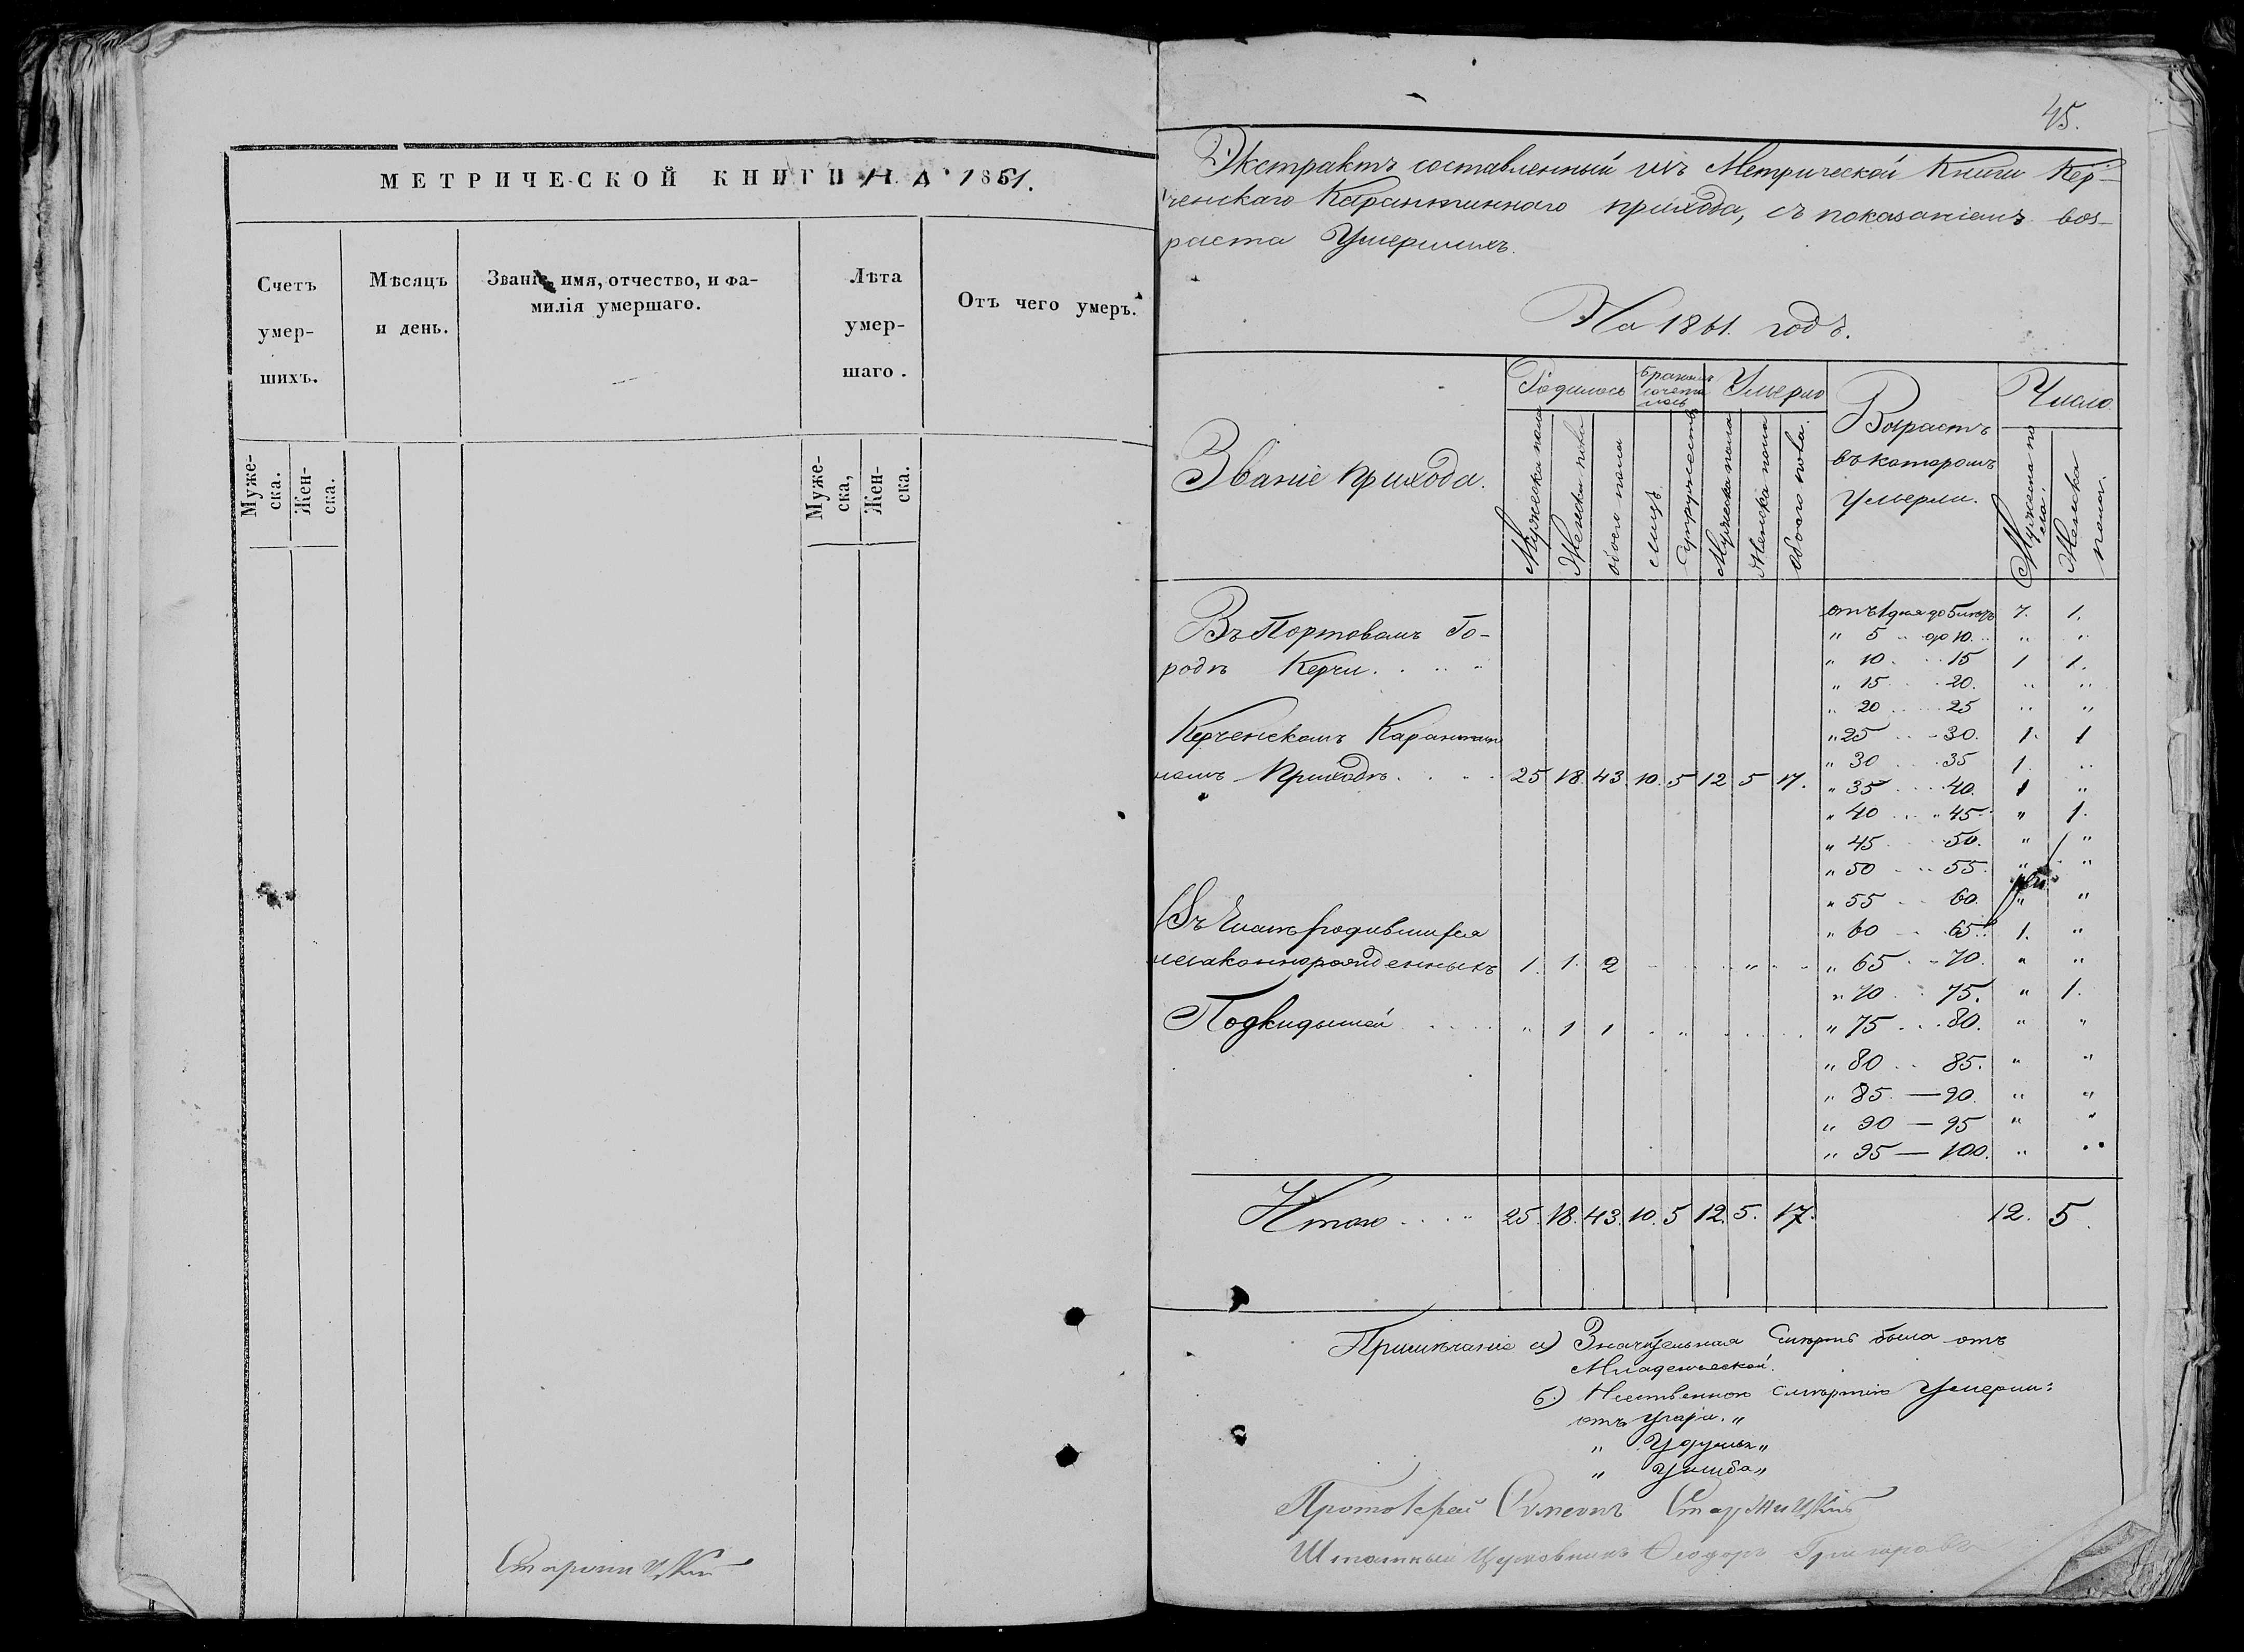 МЕТРИЧЕСКОЙ КНИГИ НА 1861.
Счетъ умер-шихъ.
Мѣсяцъ и день.
Званіе, имя, отчество, и фа-
милія умершаго.
Лѣта умер-шаго.
Отъ чего умеръ.
Муже-ска.
Жен-ска.
Муже-ска,
Жен-ска.
45.
Экстрактъ составленный изъ Метрической Книги Кер-
ченскаго Карантиннаго прихода, съ показаніемъ воз-
раста Умершихъ.
На 1861. годъ.
Званіе прихода.
Родилось
Бракомъ сочета лось
Умерло
Возрастъ въ которомъ Умерли.
Число
Мужеска пола
Женска пола
обоего пола
лицъ
Супружествъ
Мужеска пола
Женска пола
обоего пола.
Мужеска по ла.
Женска пола.
Въ Портовомъ Го-
родѣ Керчи. . . . "
Керченскомъ Карантин
номъ Приходѣ. . . . 25 18. 43 10. 5 12 5 17.
Въ числѣ родившихся
незаконнорожденныхъ 1. 1. 2 "
Подкидышей " 1 1 "
отъ 1 дня до 5 лѣтъ 7. 1.
" 5 .. до 10. .. " "
" 10. . . 15 1 1.
" 15 . . . 20. " "
" 20 . . . 25 " "
" 25 . . . 30. 1. 1
" 30 . . . 35 1. "
" 35 . . . 40. 1 "
" 40 . . . 45 " 1.
" 45 . . . 50. " "
" 50 . . . 55. " "
" 55 . . 60. " "
" 60 . . 65. 1. "
" 65 . . 70. " "
" 70 . . 75. " 1.
" 75 . . . 80. " "
" 80 . . 85. " "
" 85. — 90. " "
" 90 — 95 " "
" 95 — 100. " "
Итого . . . . 25. 18. 43. 10. 5 12. 5. 17. 12. 5.
Примѣчаніе а) Значительная Смерть была отъ
Младенческой.
б.) Неественною Смертію Умерли:
отъ Угара. "
" Удушья "
" Ушиба "
Протоіерей Симеонъ
Штатный Церковникъ Ѳеодоръ Григоровъ